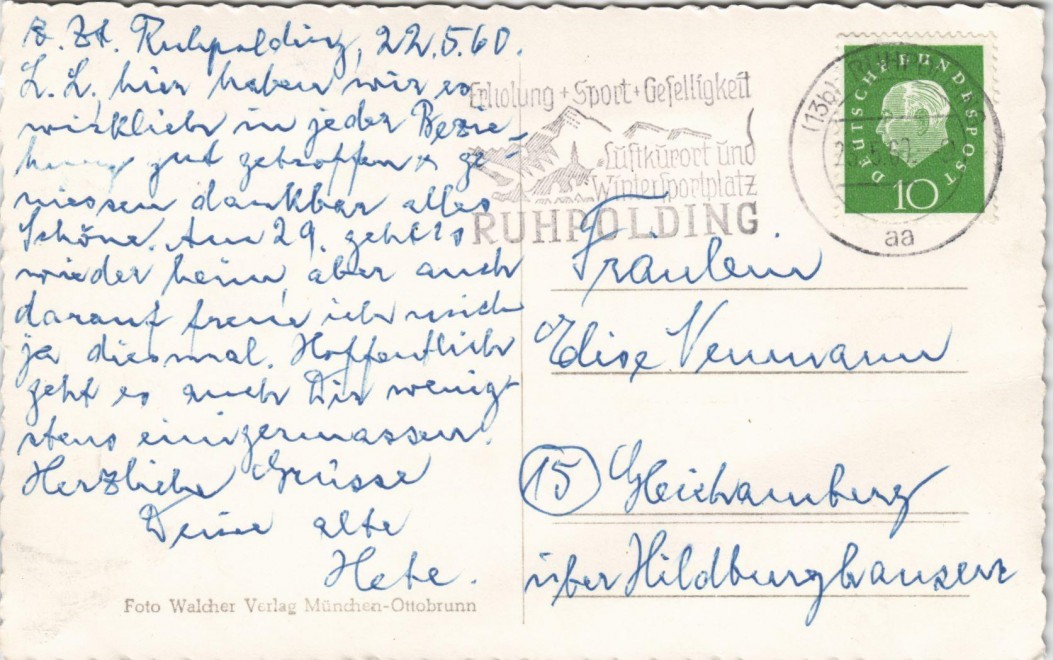 z. Zt. Ruhpolding, 22.5.60.
L. L., hier haben wir es
wirklich in jeder Bezie-
hung gut getroffen u. ge-
niessen dankbar alles
Schöne. Am 29. geht's
wieder heim, aber auch
darauf freue ich mich
ja diesmal. Hoffentlich
geht es auch Dir wenig-
stens einigermassen.
Herzliche Grüsse
Deine alte
Foto Walcher Verlag München-Ottobrunn
Erholung + Sport + Geselligkeit
Luftkurort und
Wintersportplatz
RUHPOLDING
(13b) RUHP
5.60
aa
DEUTSCHE BUNDESPOST
10
Fräulein
Elise
(15) Gleichamberg
über Hildburghausen